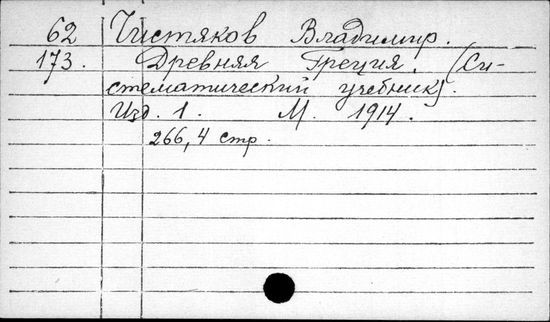 62 Чистяков Владимир.
173. Древняя Греция. (Си-
стематический учебник).
Изд. 1. М. 1914.
266,4 стр.